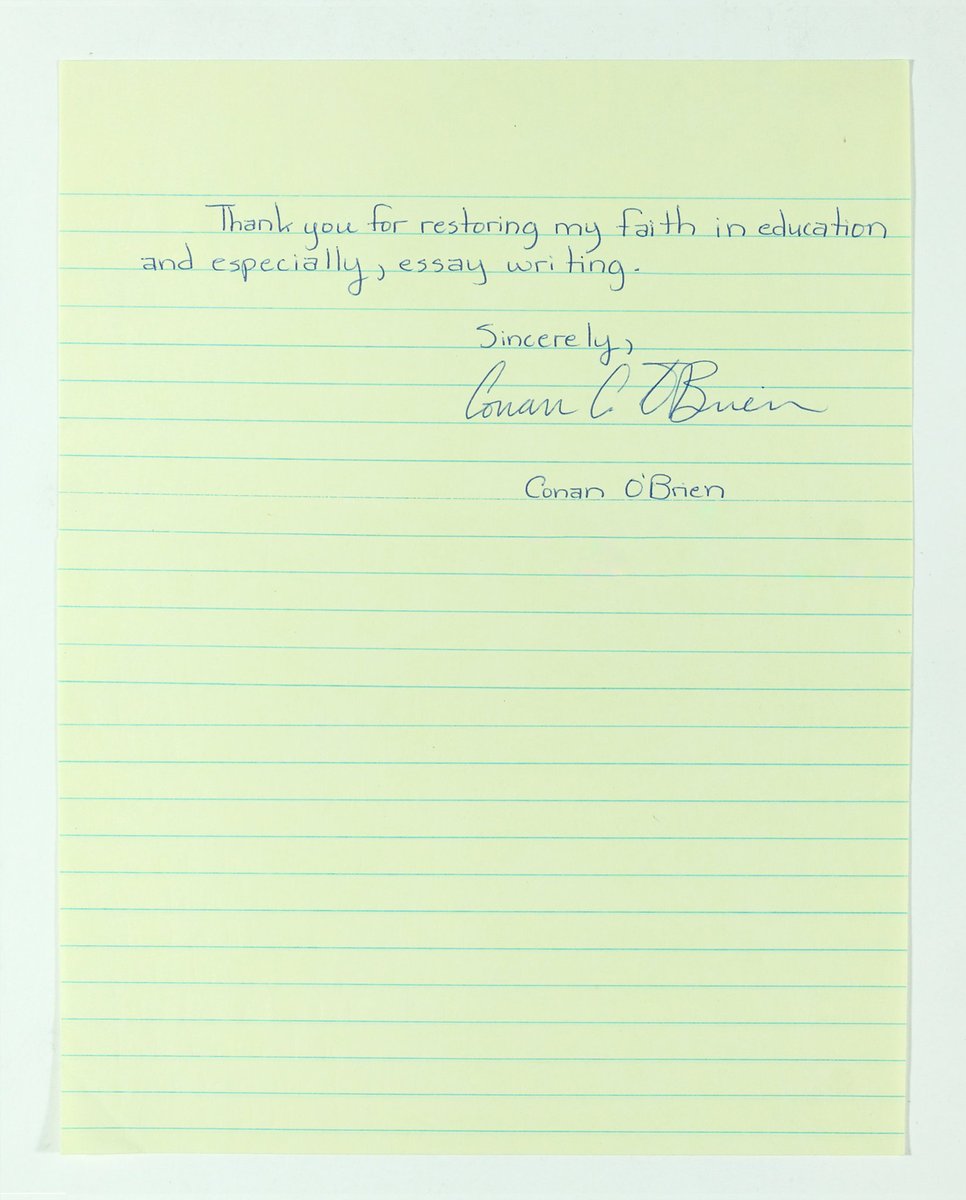 Thank you for restoring my faith in education
and especially, essay writing.
Sincerely,
Conan C. O'Brien
Conan O'Brien